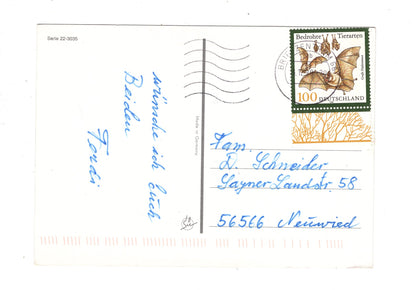 Serie 22-3035
wünsche ich Euch
Beiden
Made in Germany
Bedrohte Tierarten
100 DEUTSCHLAND
Fam.
D. Schneider
Sayner Landstr. 58
56566 Neuwied